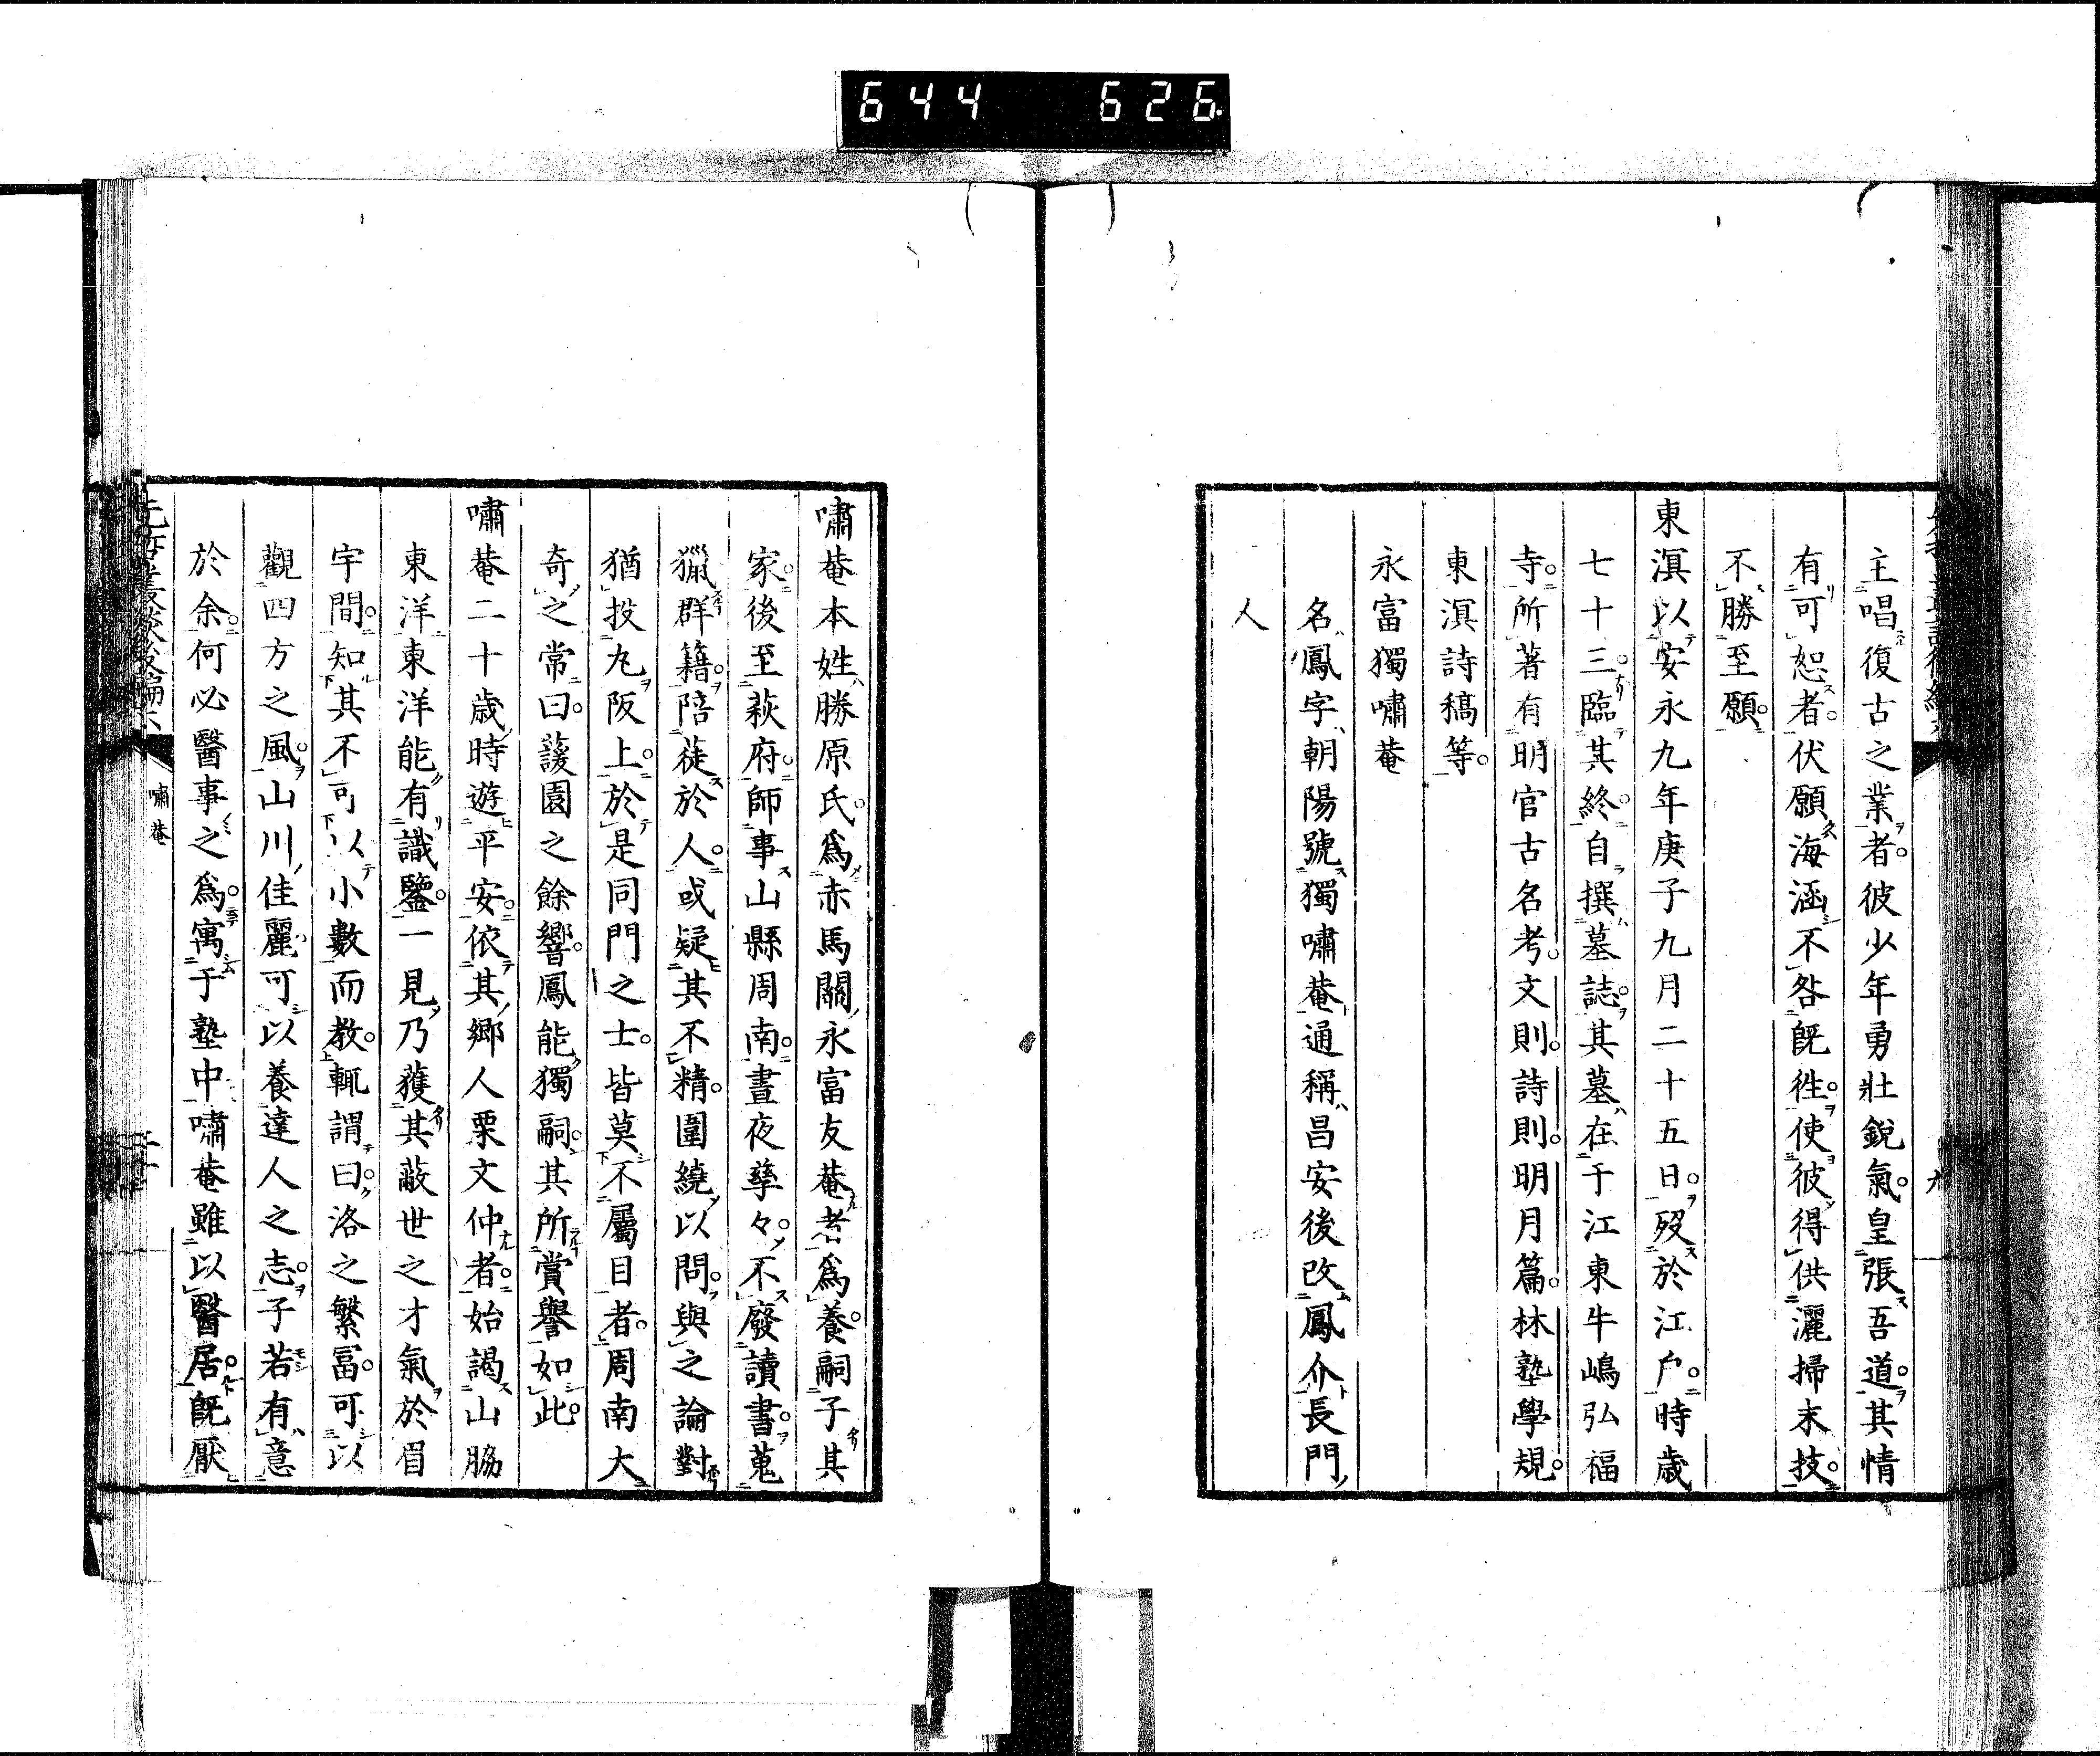 644 626
主唱復古之業者彼少年勇壯銳氣皇張吾道其情
有可恕者伏願海涵不咎既徃使彼得供灑掃末技
不勝至願
東溟以安永九年庚子九月二十五日歿於江戶時歲
七十三臨其終自撰墓誌其墓在于江東牛嶋弘福
寺所著有明官古名考文則詩則明月篇林塾學規
東溟詩稿等
永富獨嘯菴
名鳳字朝陽號獨嘯菴通稱昌安後改鳳介長門
人
嘯菴本姓勝原氏爲赤馬關永富友菴者爲養嗣子其
家後至萩府師事山縣周南晝夜孳々不廢讀書蒐
獵群籍陪從於人或疑其不精圍繞以問與之論對
猶投丸阪上於是同門之士皆莫不屬目者周南大
奇之常曰蘐園之餘響鳳能獨嗣其所賞譽如此
嘯菴二十歲時遊平安依其鄉人栗文仲者始謁山脇
東洋東洋能有識鑒一見乃獲其蔽世之才氣於眉
宇間知其不可以小數而教輒謂曰洛之繁冨可以
觀四方之風山川佳麗可以養達人之志子若有意
於余何必醫事之爲寓于塾中嘯菴雖以醫居既厭
嘯菴